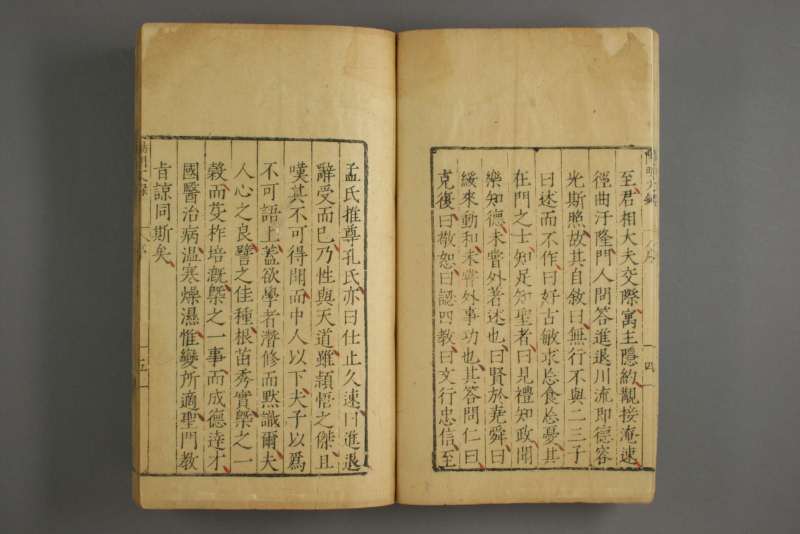 至君相大夫交際寓主隱約覯接淹速
徑曲汙隆門人問答進退川流即德容
光斯照故其自敘曰無行不與二三子
曰述而不作曰好古敏求忘食忘憂其
在門之士知足知聖者曰見禮知政聞
樂知德未嘗外著述也曰賢於堯舜曰
綏來動和未嘗外事功也其答問仁曰
克復曰敬恕曰認四教曰文行忠信至
四
孟氏推尊孔氏亦曰仕止久速曰進退
辭受而已乃性與天道雖頴悟之傑且
嘆其不可得聞而中人以下夫子以爲
不可語上蓋欲學者濳修而默識爾夫
人心之良譬之佳種根苗秀實槩之一
穀而芟柞培漑槩之一事而成德逹才
國醫治病温寒燥濕惟變所適聖門教
旨諒同斯矣
五